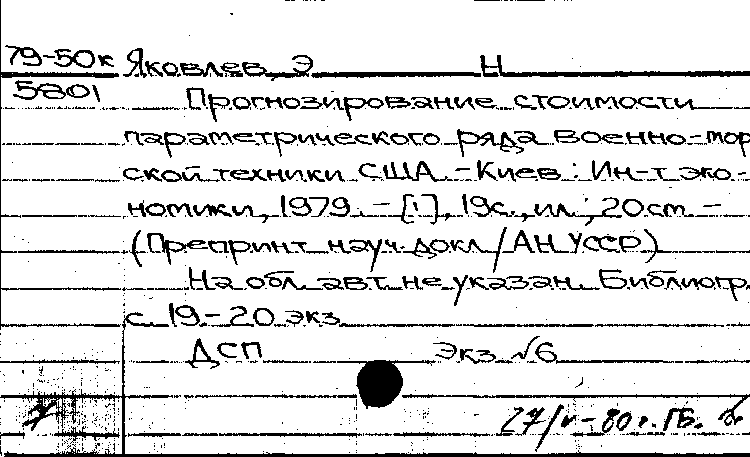 79-50к Яковлев, Э Н
5801 Прогнозирование стоимости
параметрического ряда военно-мор
ской техники США. - Киев : Ин-т эко-
номики, 1979. - [1], 19с., ил.; 20см. -
(Препринт науч. докл / АН УССР)
На обл. авт. не указан. Библиогр.
с. 19-20 экз.
ДСП Экз №6
27/V-80г. ГБ.